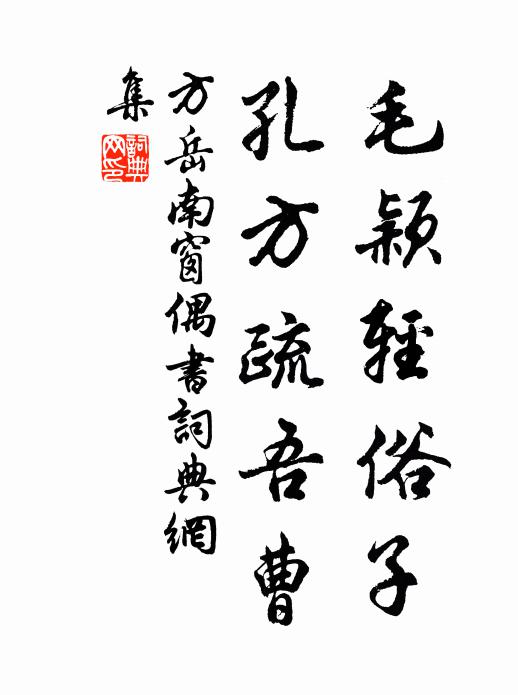 毛穎輕俗子
孔方疏吾曹
方岳南窗偶書詞典網
集
詞典
网印